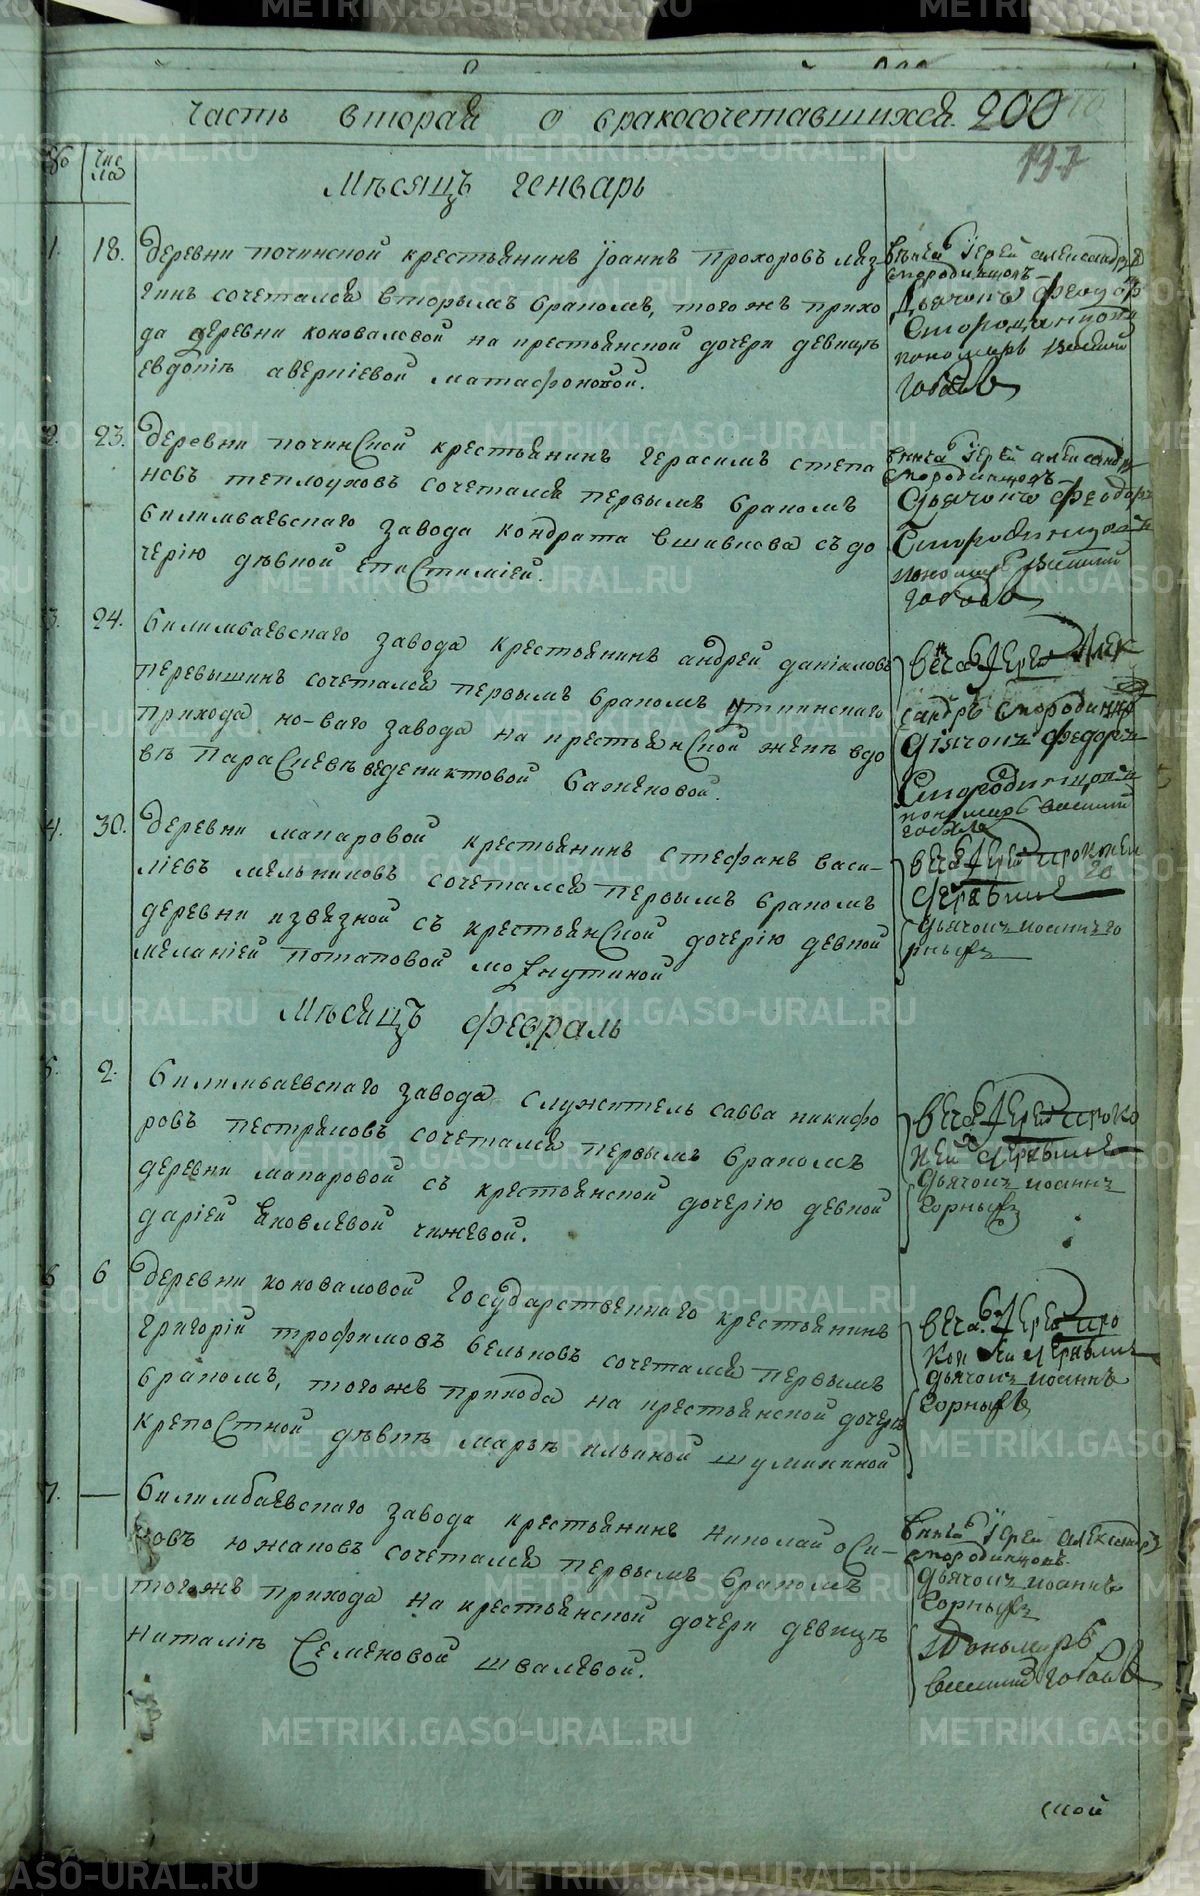 Часть вторая о бракосочетавшихся 200
197
Чис
ла
Мѣсяцъ Генварь
1. 18. Деревни починской крестьянинъ Іоаннъ Прохоровъ Ляз
гинъ сочетался вторымъ бракомъ, того жъ прихо
да деревни коноваловой на крестьянской дочери девицѣ
Евдокіи аверкіевой матафоновой.
Вѣнча. Іерей александръ
Смородинцовъ
Дьячокъ Феодоръ
Смородинцовъ
пономарь Василий
2. 23. Деревни починской крестьянинъ Герасимъ степа
новъ теплоуховъ сочетался первымъ бракомъ
билимбаевскаго завода кондрата вшивкова съ до
черію дѣвкой епистиміей.
Вѣнча Іерей александръ
Смородинцовъ
Дьячокъ Феодоръ
Смородинцовъ
пономарь Василий
3. 24. Билимбаевскаго завода крестьянинъ андрей даніиловъ
перевышинъ сочетался первымъ бракомъ уткинскаго
прихода но-ваго завода на крестьянской женѣ вдо
вѣ Параскевѣ ведениктовой баженовой.
Венча Іерей Алек
сандръ Смородинцо
Діячокъ Федоръ
Смородинцовъ
пономарь Василий
4. 30. Деревни макаровой крестьянинъ стефанъ васи-
ліевъ мельниковъ сочетался первымъ бракомъ
деревни извезной съ крестьянской дочерію девкой
меланіей Потаповой мохнуткиной
Венча Іерей Прокопей
дьячокъ иоаннъ го
рныхъ
Мѣсяцъ Февраль
5. 2. Билимбаевскаго завода служитель савва никифо
ровъ пестряковъ сочетался первымъ бракомъ
деревни макаровой съ крестьянской дочерію девкой
даріей Яковлевой чижевой.
Венча Іерей Проко
пей
дьячокъ иоаннъ
Горныхъ
6 6 Деревни коноваловой Государственнаго крестьянинъ
Григорій трофимовъ бельковъ сочетался первымъ
бракомъ, того жъ прихода на крестьянской дочерѣ
крепостной дѣвкѣ марьѣ ильиной шумихиной
Венча. Іерей Про
дьячокъ иоаннъ
Горныхъ
7. — Билимбаевскаго завода крестьянинъ Николай оси-
повъ южаковъ сочетался первымъ бракомъ
того жъ прихода на крестьянской дочери девицѣ
наталіи Семеновой швалевой.
Вѣнча Іерей Александръ
Смородинцовъ
дьячокъ иоаннъ
Горныхъ
Пономарь
Василий
ской
METRIKI.GASO-URAL.RU